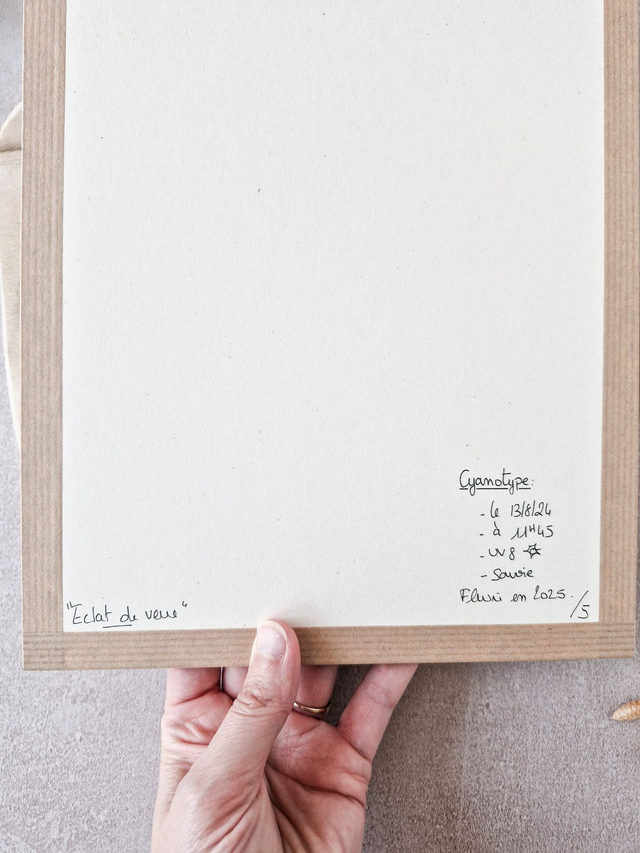 Cyanotype:
- le 13/8/24
- à 11H45
- UV 8
- Savie
Fleuri en 2025.
/5
"Eclat de verre"